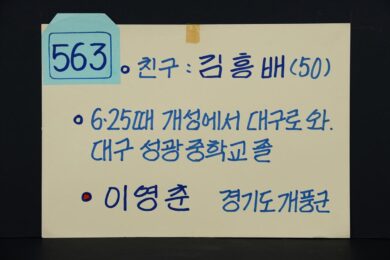 563
친구 : 김흥배 (50)
6·25때 개성에서 대구로 와.
대구 성광중학교 졸
이영춘 경기도 개풍군